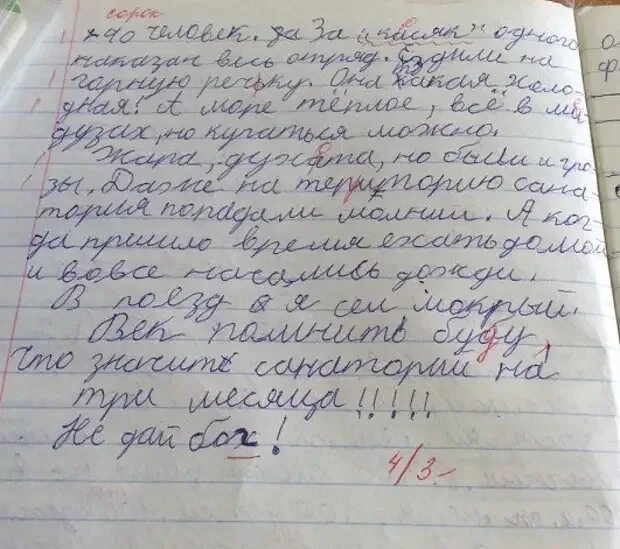 сорок
40 человек. За "касяк" одного
наказан весь отряд. Ездили на
горную речьку. Она такая холо-
дная! А море тёплое, всё в ме
дузах, но купаться можно.
Жара, духата, но были и гро-
зы. Даже на территорию сана-
тория попадали молнии. А ког-
да пришло время ехать домой
и вовсе начались дожди.
В поезд я сел мокрый.
Век помнить буду,
что значит санаторий на
три месяца!!!!!
Не дай бох!
4/3-